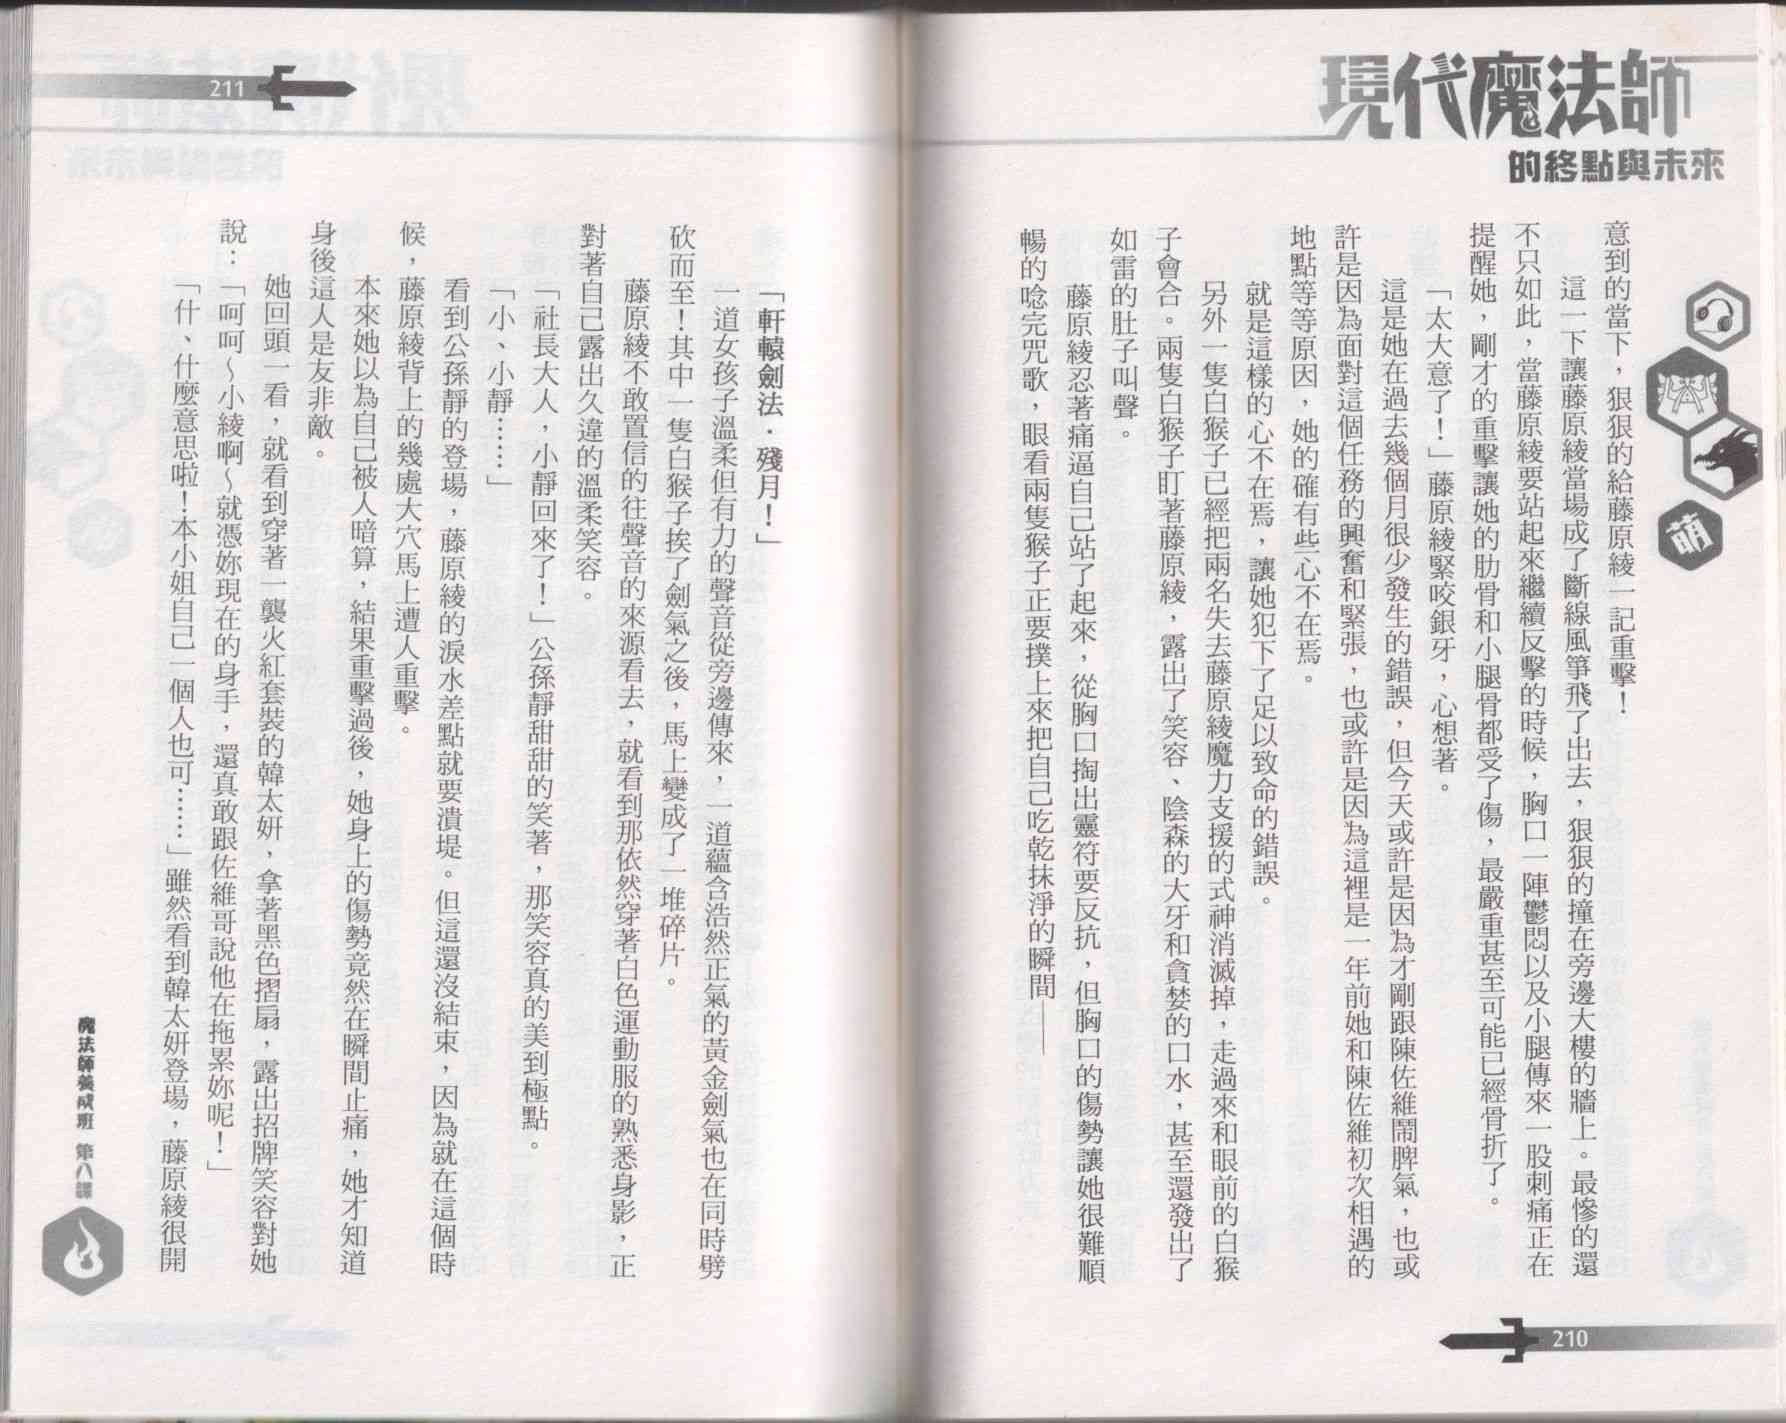 現代魔法師
的終點與未來
萌
意到的當下，狠狠的給藤原綾一記重擊！
這一下讓藤原綾當場成了斷線風箏飛了出去，狠狠的撞在旁邊大樓的牆上。最慘的還
不只如此，當藤原綾要站起來繼續反擊的時候，胸口一陣鬱悶以及小腿傳來一股刺痛正在
提醒她，剛才的重擊讓她的肋骨和小腿骨都受了傷，最嚴重甚至可能已經骨折了。
「太大意了！」藤原綾緊咬銀牙，心想著。
這是她在過去幾個月很少發生的錯誤，但今天或許是因為才剛跟陳佐維鬧脾氣，也或
許是因為面對這個任務的興奮和緊張，也或許是因為這裡是一年前她和陳佐維初次相遇的
地點等等原因，她的確有些心不在焉。
就是這樣的心不在焉，讓她犯下了足以致命的錯誤。
另外一隻白猴子已經把兩名失去藤原綾魔力支援的式神消滅掉，走過來和眼前的白猴
子會合。兩隻白猴子盯著藤原綾，露出了笑容、陰森的大牙和貪婪的口水，甚至還發出了
如雷的肚子叫聲。
藤原綾忍著痛逼自己站了起來，從胸口掏出靈符要反抗，但胸口的傷勢讓她很難順
暢的唸完咒歌，眼看兩隻猴子正要撲上來把自己吃乾抹淨的瞬間——
210
211
「軒轅劍法．殘月！」
一道女孩子溫柔但有力的聲音從旁邊傳來，一道蘊含浩然正氣的黃金劍氣也在同時劈
砍而至！其中一隻白猴子挨了劍氣之後，馬上變成了一堆碎片。
藤原綾不敢置信的往聲音的來源看去，就看到那依然穿著白色運動服的熟悉身影，正
對著自己露出久違的溫柔笑容。
「社長大人，小靜回來了！」公孫靜甜甜的笑著，那笑容真的美到極點。
「小、小靜……」
看到公孫靜的登場，藤原綾的淚水差點就要潰堤。但這還沒結束，因為就在這個時
候，藤原綾背上的幾處大穴馬上遭人重擊。
本來她以為自己被人暗算，結果重擊過後，她身上的傷勢竟然在瞬間止痛，她才知道
身後這人是友非敵。
她回頭一看，就看到穿著一襲火紅套裝的韓太妍，拿著黑色摺扇，露出招牌笑容對她
說：「呵呵～小綾啊～就憑妳現在的身手，還真敢跟佐維哥說他在拖累妳呢！」
「什、什麼意思啦！本小姐自己一個人也可……」雖然看到韓太妍登場，藤原綾很開
魔法師養成班 第八課